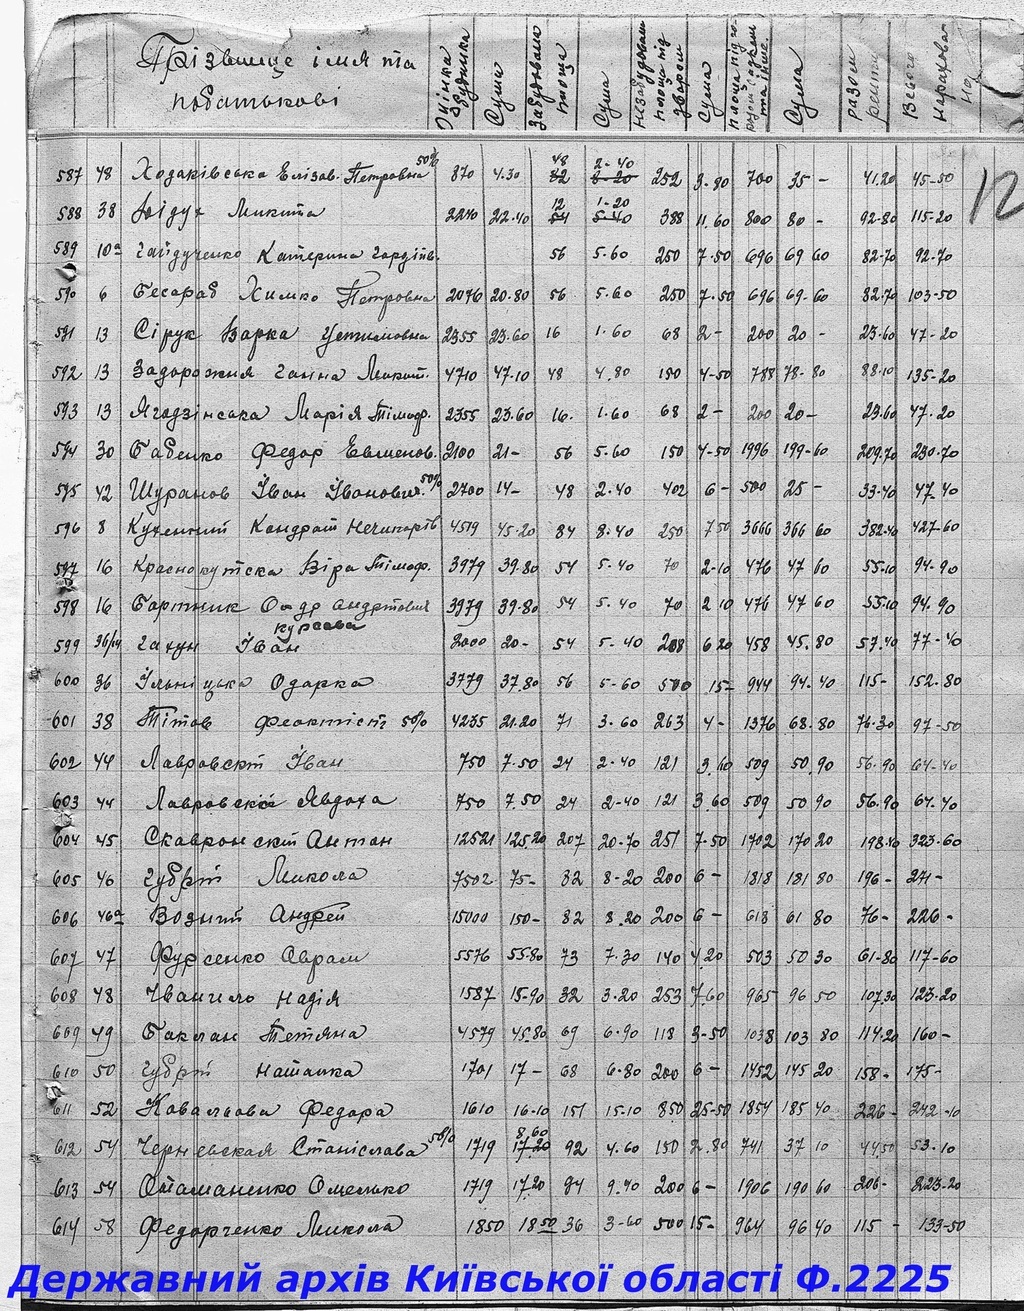 Прізвище імя та
побатькові
Оцінка будинка
Сума
Забудована площа
Сума
Незабудована площа під двором
Сума
площа під садком та інше.
Сума
разом ренти
Всього нарахован
12
587 48 Ходаківська Елізав. Петровна 50% 870 4.30 48 32 2-40 3-20 252 3.80 700 35 - 41.20 45-50
588 38 Микита 2240 22.40 12 54 1-20 5-40 388 11.60 800 80 - 92-80 115-20
589 10а Гайдученко Катерина Гордіїв. 56 5.60 250 7-50 696 69 60 82-70 92-70
590 6 Бесараб Химко Петровна 2076 20-80 56 5.60 250 7-50 696 69-60 82.70 103-50
591 13 Сірук Варка Устимовна 2355 23.60 16 1.60 68 2- 200 20 - 23.60 47-20
592 13 Задорожня Ганна Микит. 4710 47-10 48 4.80 150 4-50 788 78-80 88-10 135-20
593 13 Ягодзінська Марія Тімоф. 2355 23.60 16. 1.60 68 2- 200 20- 23.60 47-20
594 30 Бабенко Федор Евменов. 2100 21- 56 5.60 150 4-50 1996 199-60 209.70 230-70
595 42 Шуранов Іван Іванович. 50% 2700 14- 48 2.40 402 6- 500 25- 33-40 47.40
596 8 Кухенний Кандрат Нечипорів 4519 45-20 84 8.40 250 7 50 3666 366 60 382-40 427-60
597 16 Краснокутска Віра Тімоф. 3979 39.80 54 5.40 70 2-10 476 47 60 55-10 94-90
598 16 Бортник О-др Андрієвич 3979 39.80 54 5.40 70 2 10 476 47 60 55-10 94.90
599 36/14 Гахун Іван 2000 20- 54 5-40 208 6 20 458 45.80 57.40 77-40
600 36 Ільніцька Одарка 3779 37.80 56 5-60 500 15- 944 94-40 115- 152.80
601 38 Тітов Феоктіст 50% 4235 21.20 71 3.60 263 4- 1376 68.80 76-30 97-50
602 44 Лавровскій Іван 750 7-50 24 2-40 121 3.60 509 50.90 56-90 64-40
603 44 Лавровскій Явдоха 750 7.50 24 2-40 121 3.60 509 50 90 56-90 64.40
604 45 Скавронскій Антан 12521 125.20 207 20-70 251 7-50 1702 170 20 198.40 323-60
605 46 Губрій Микола 7502 75- 82 8-20 200 6- 1818 181 80 196- 271-
606 46а Возний Андрей 15000 150- 82 8.20 200 6- 618 61 80 76- 226-
607 47 Фурсенко Аврам 5576 55-80 73 7.30 140 4.20 503 50 30 61-80 117-60
608 48 Івангело Надія 1587 15-90 32 3-20 253 7.60 965 96 50 107.30 123-20
609 49 Баклан Тетяна 4579 45.80 69 6.90 118 3-50 1038 103 80 114-20 160-
610 50 Губрій Наталка 1701 17- 68 6.80 200 6- 1452 145 20 158- 175-
611 52 Ковальова Федора 1610 16-10 151 15-10 850 25-50 1854 185 40 226- 242-10
612 54 Чернєвская Станіслава 50% 1719 8.60 17.20 92 4.60 150 2.80 741 37 10 44.50 53-10
613 54 Отаманенко Омелько 1719 17.20 94 9.40 200 6- 1906 190 60 206- 223-20
614 58 Федорченко Микола 1850 18 50 36 3-60 500 15- 964 96 40 115- 133-50
Державний архів Київської області Ф.2225